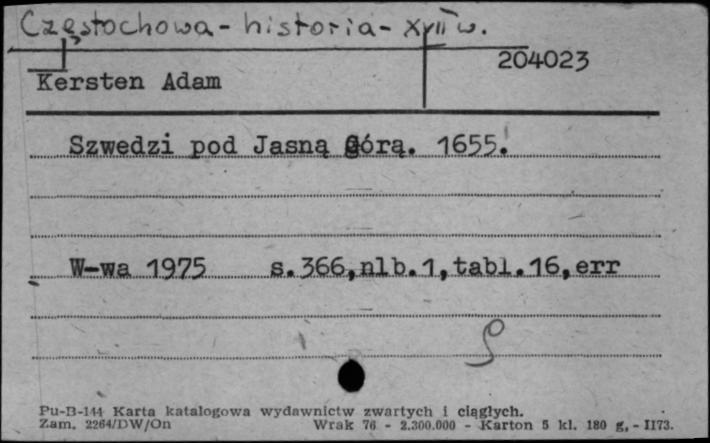 Częstochowa - historia - XVII w.
204023
Kersten Adam
Szwedzi pod Jasną Górą. 1655.
W-wa 1975 s.366,nlb.1,tabl.16,err
Pu-B-144 Karta katalogowa wydawnictw zwartych i ciągłych.
Zam. 2264/DW/On Wrak 76 - 2.300.000 - Karton 5 kl. 180 g. - II73.